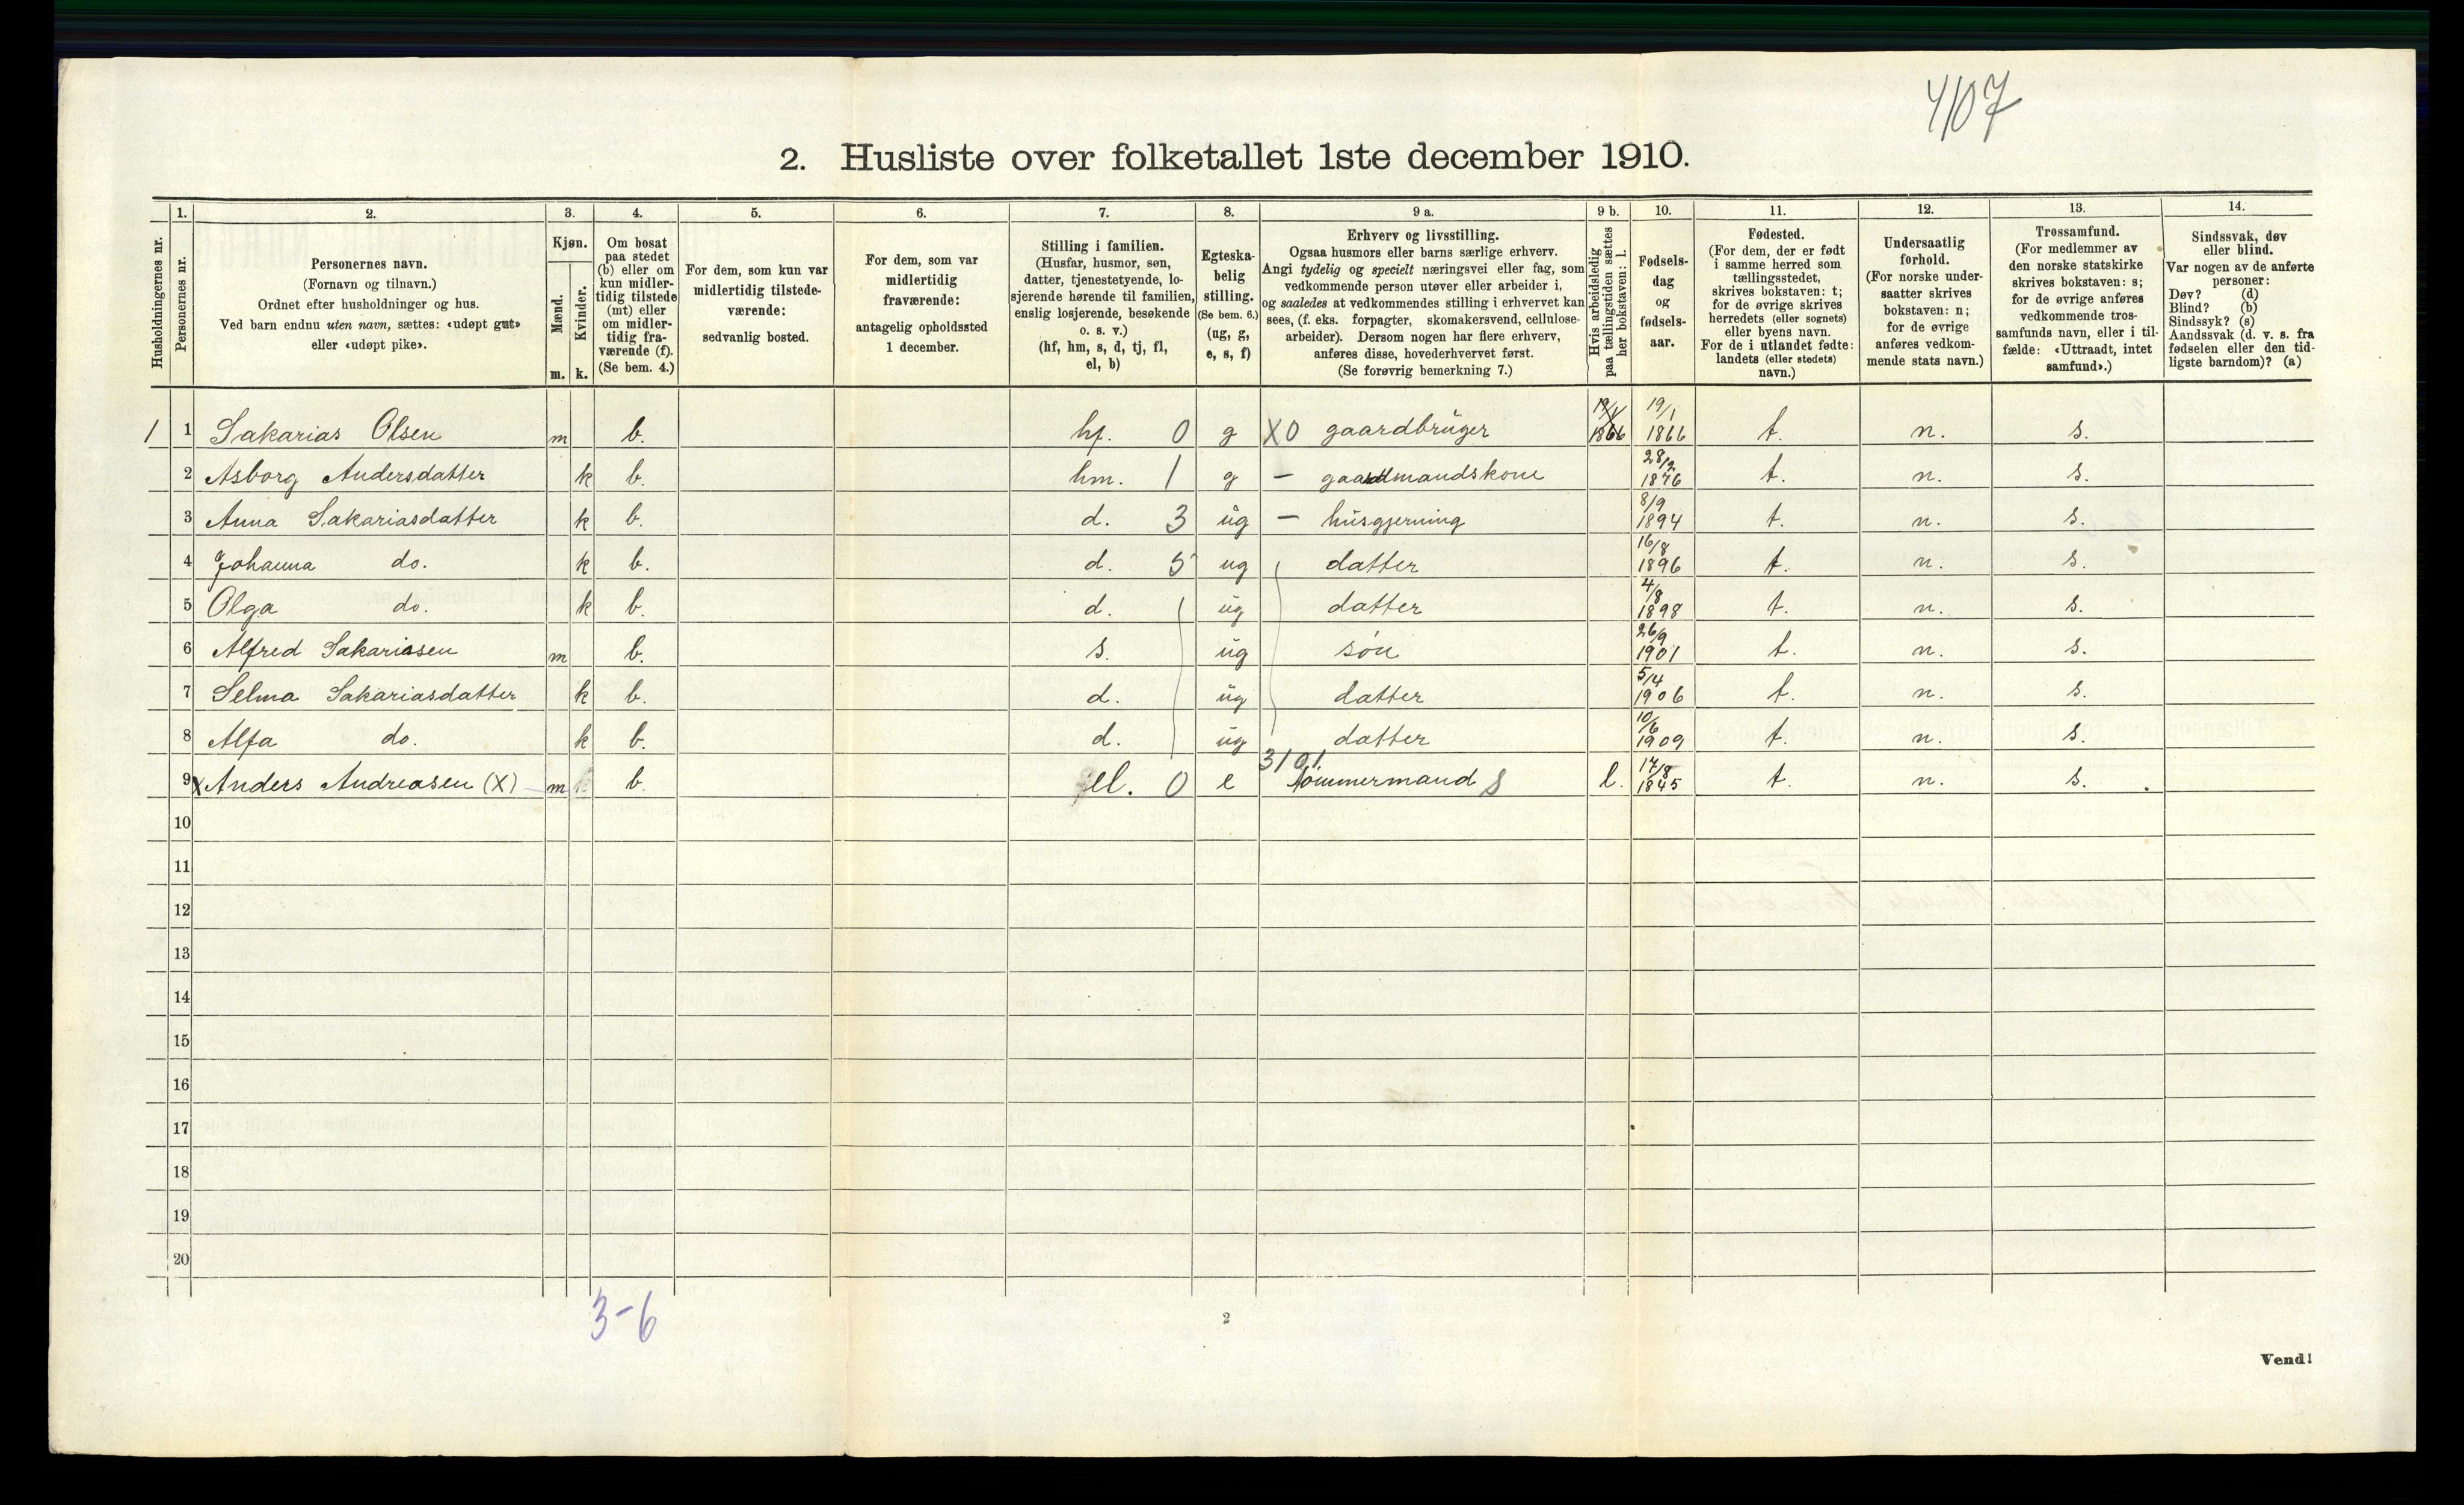 4107
2. Husliste over folketallet 1ste december 1910.
Husholdningernes nr.
1.
Personernes nr.
2.
Personernes navn.
(Fornavn og tilnavn.)
Ordnet efter husholdninger og hus.
Ved barn endnu uten navn, sættes: «udøpt gut»
eller «udøpt pike».
3.
Kjøn.
Mænd.
Kvinder.
m. k.
4.
Om bosat
paa stedet
(b) eller om
kun midler-
tidig tilstede
(mt) eller
om midler-
tidig fra-
værende (f).
(Se bem. 4.)
5.
For dem, som kun var
midlertidig tilstede-
værende:
sedvanlig bosted.
6.
For dem, som var
midlertidig
fraværende:
antagelig opholdssted
1 december.
7.
Stilling i familien.
(Husfar, husmor, søn,
datter, tjenestetyende, lo-
sjerende hørende til familien,
enslig losjerende, besøkende
o. s. v.)
(hf, hm, s, d, tj, fl,
el, b)
8.
Egteska-
belig
stilling.
(Se bem. 6.)
(ug, g,
e, s, f)
9 a.
Erhverv og livsstilling.
Ogsaa husmors eller barns særlige erhverv.
Angi tydelig og specielt næringsvei eller fag, som
vedkommende person utøver eller arbeider i,
og saaledes at vedkommendes stilling i erhvervet kan
sees, (f. eks. forpagter, skomakersvend, cellulose-
arbeider). Dersom nogen har flere erhverv,
anføres disse, hovederhvervet først.
(Se forøvrig bemerkning 7.)
9 b.
Hvis arbeidsledig
paa tællingstiden sættes
her bokstaven: l.
10.
Fødsels-
dag
og
fødsels-
aar.
11.
Fødested.
(For dem, der er født
i samme herred som
tællingsstedet,
skrives bokstaven: t;
for de øvrige skrives
herredets (eller sognets)
eller byens navn.
For de i utlandet fødte:
landets (eller stedets)
navn.)
12.
Undersaatlig
forhold.
(For norske under-
saatter skrives
bokstaven: n;
for de øvrige
anføres vedkom-
mende stats navn.)
13.
Trossamfund.
(For medlemmer av
den norske statskirke
skrives bokstaven: s;
for de øvrige anføres
vedkommende tros-
samfunds navn, eller i til-
fælde: «Uttraadt, intet
samfund».)
14.
Sindssvak, døv
eller blind.
Var nogen av de anførte
personer:
Døv? (d)
Blind? (b)
Sindssyk? (s)
Aandssvak (d. v. s. fra
fødselen eller den tid-
ligste barndom)? (a)
1 1 Sakarias Olsen m b. hf. 0 g X0 gaardbruger 19/1 1866 19/1 1866 t. n. s.
2 Asborg Andersdatter k b. hm. 1 g – gaardmandskone 28/2 1876 t. n. s.
3 Anna Sakariasdatter k b. d. 3 ug – husgjerning 8/9 1894 t. n. s.
4 Johanna do. k b. d. 5 ug datter 16/8 1896 t. n. s.
5 Olga do. k b. d. ug datter 4/8 1898 t. n. s.
6 Alfred Sakariasen m b. s. ug søn 26/9 1901 t. n. s.
7 Selma Sakariasdatter k b. d. ug datter 5/4 1906 t. n. s.
8 Alfa do. k b. d. ug datter 10/6 1909 t. n. s.
9 X Anders Andreasen (X) m b. el. 0 e 3101 tømmermand S l. 17/8 1845 t. n. s.
10
11
12
13
14
15
16
17
18
19
20
3-6
2
Vend!